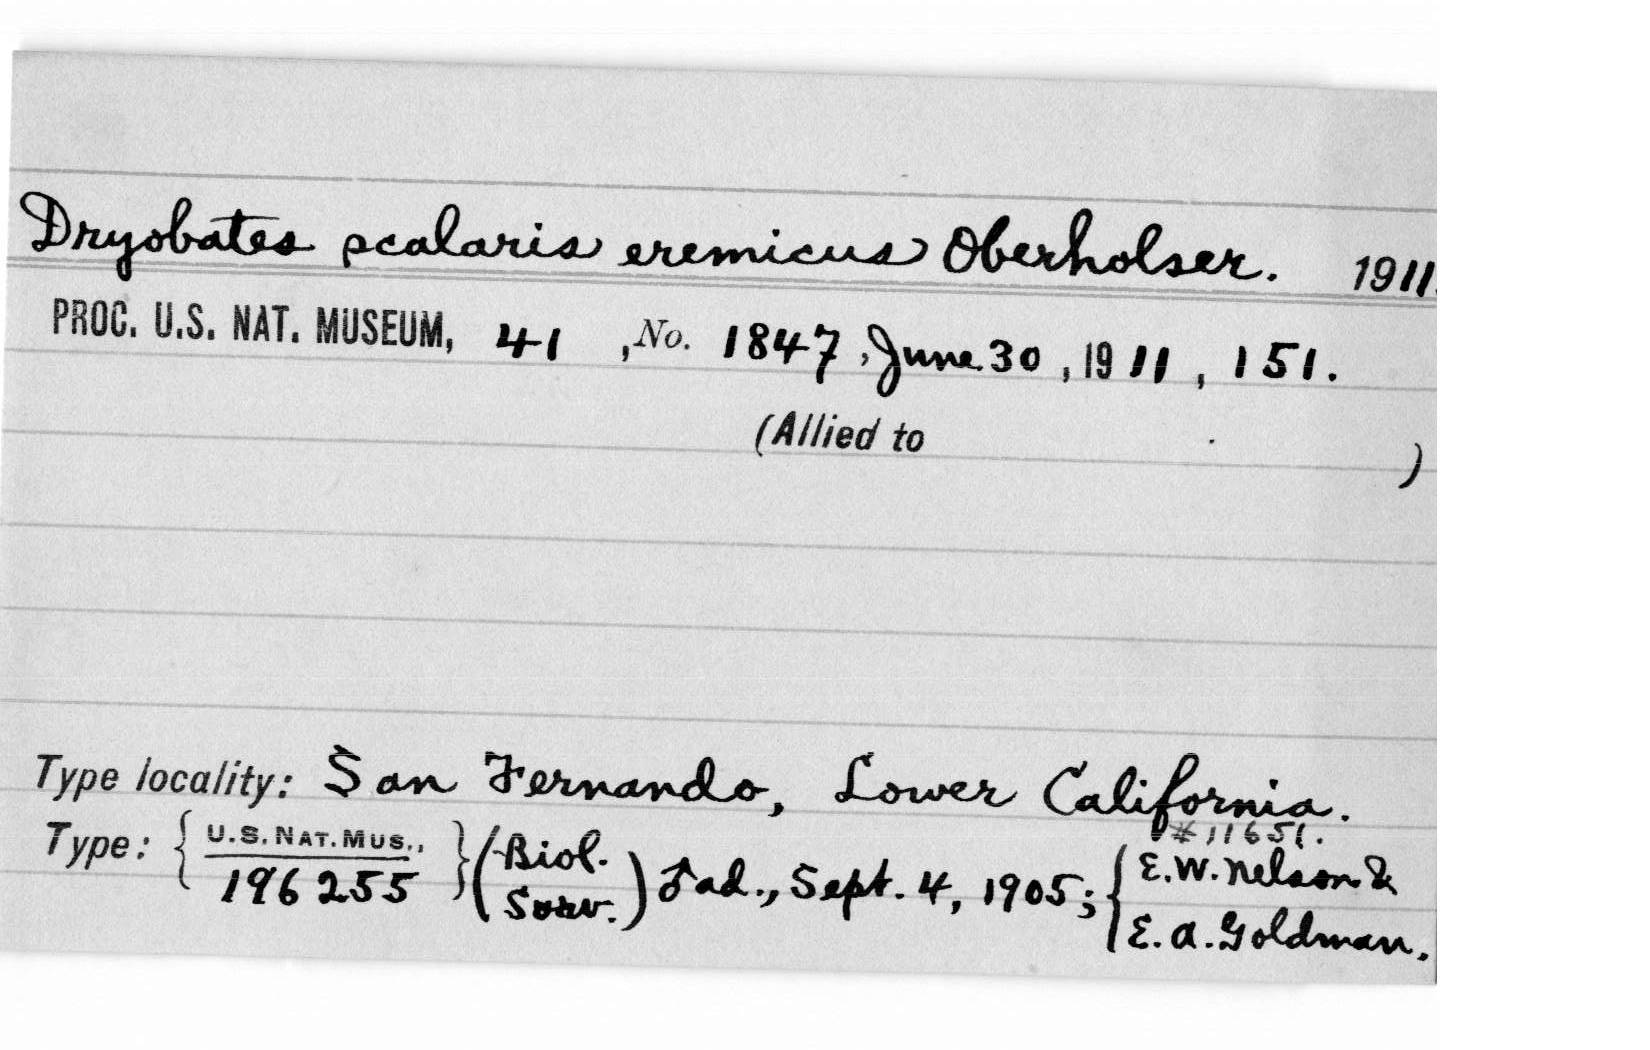 Dryobates scalaris eremicus Oberholser. 1911.
PROC. U.S. NAT. MUSEUM, 41, No. 1847, June 30, 1911, 151.
(Allied to . )
Type locality: San Fernando, Lower California.
#11651.
Type: { U.S. NAT. MUS., 196255 } (Biol. Surv.) ♂ ad., Sept. 4, 1905; { E.W. Nelson & E.A. Goldman.